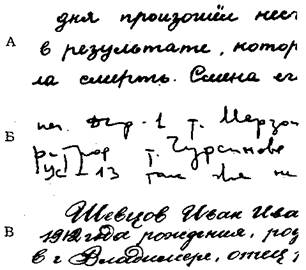 дня произошёл несч
А
в результате, котор
ла смерть. Смена ег
Б
т. Мерзон
т. Чурсинове
13 так же
Шевцов Иван Ива
В
1912 года рождения, род
в г. Владимире, отец,